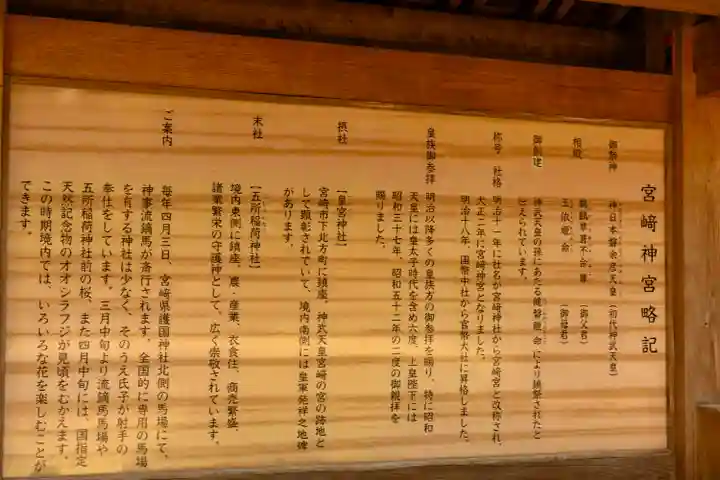 宮﨑神宮略記
御祭神
神日本磐余彦天皇(初代神武天皇)
相殿
鵜鶿草葺不合尊(御父君)
玉依姫命(御母君)
御創建
神武天皇の孫にあたる健磐龍命により鎮祭されたと
伝えられています。
称号・社格
明治十一年に社名が宮崎神社から宮崎宮と改称され、
大正二年に宮崎神宮となりました。
明治十八年、国幣中社から官幣大社に昇格しました。
皇族御参拝
明治以降多くの皇族方の御参拝を賜り、特に昭和
天皇には皇太子時代を含め六度、上皇陛下には
昭和三十七年、昭和五十二年の二度の御親拝を
賜りました。
摂社
【皇宮神社】
宮崎市下北方町に鎮座。神武天皇宮崎の宮の跡地と
して顕彰されていて、境内南側には皇軍発祥之地碑
があります。
末社
【五所稲荷神社】
境内東側に鎮座。農・産業、衣食住、商売繁盛、
諸業繁栄の守護神として、広く崇敬されています。
ご案内
毎年四月三日、宮崎県護国神社北側の馬場にて、
神事流鏑馬が斎行されます。全国的に専用の馬場
を有する神社は少なく、そのうえ氏子が射手の
奉仕をしています。三月中旬より流鏑馬馬場や
五所稲荷神社前の桜、また四月中旬には、国指定
天然記念物のオオシラフジが見頃をむかえます。
この時期境内では、いろいろな花を楽しむことが
できます。